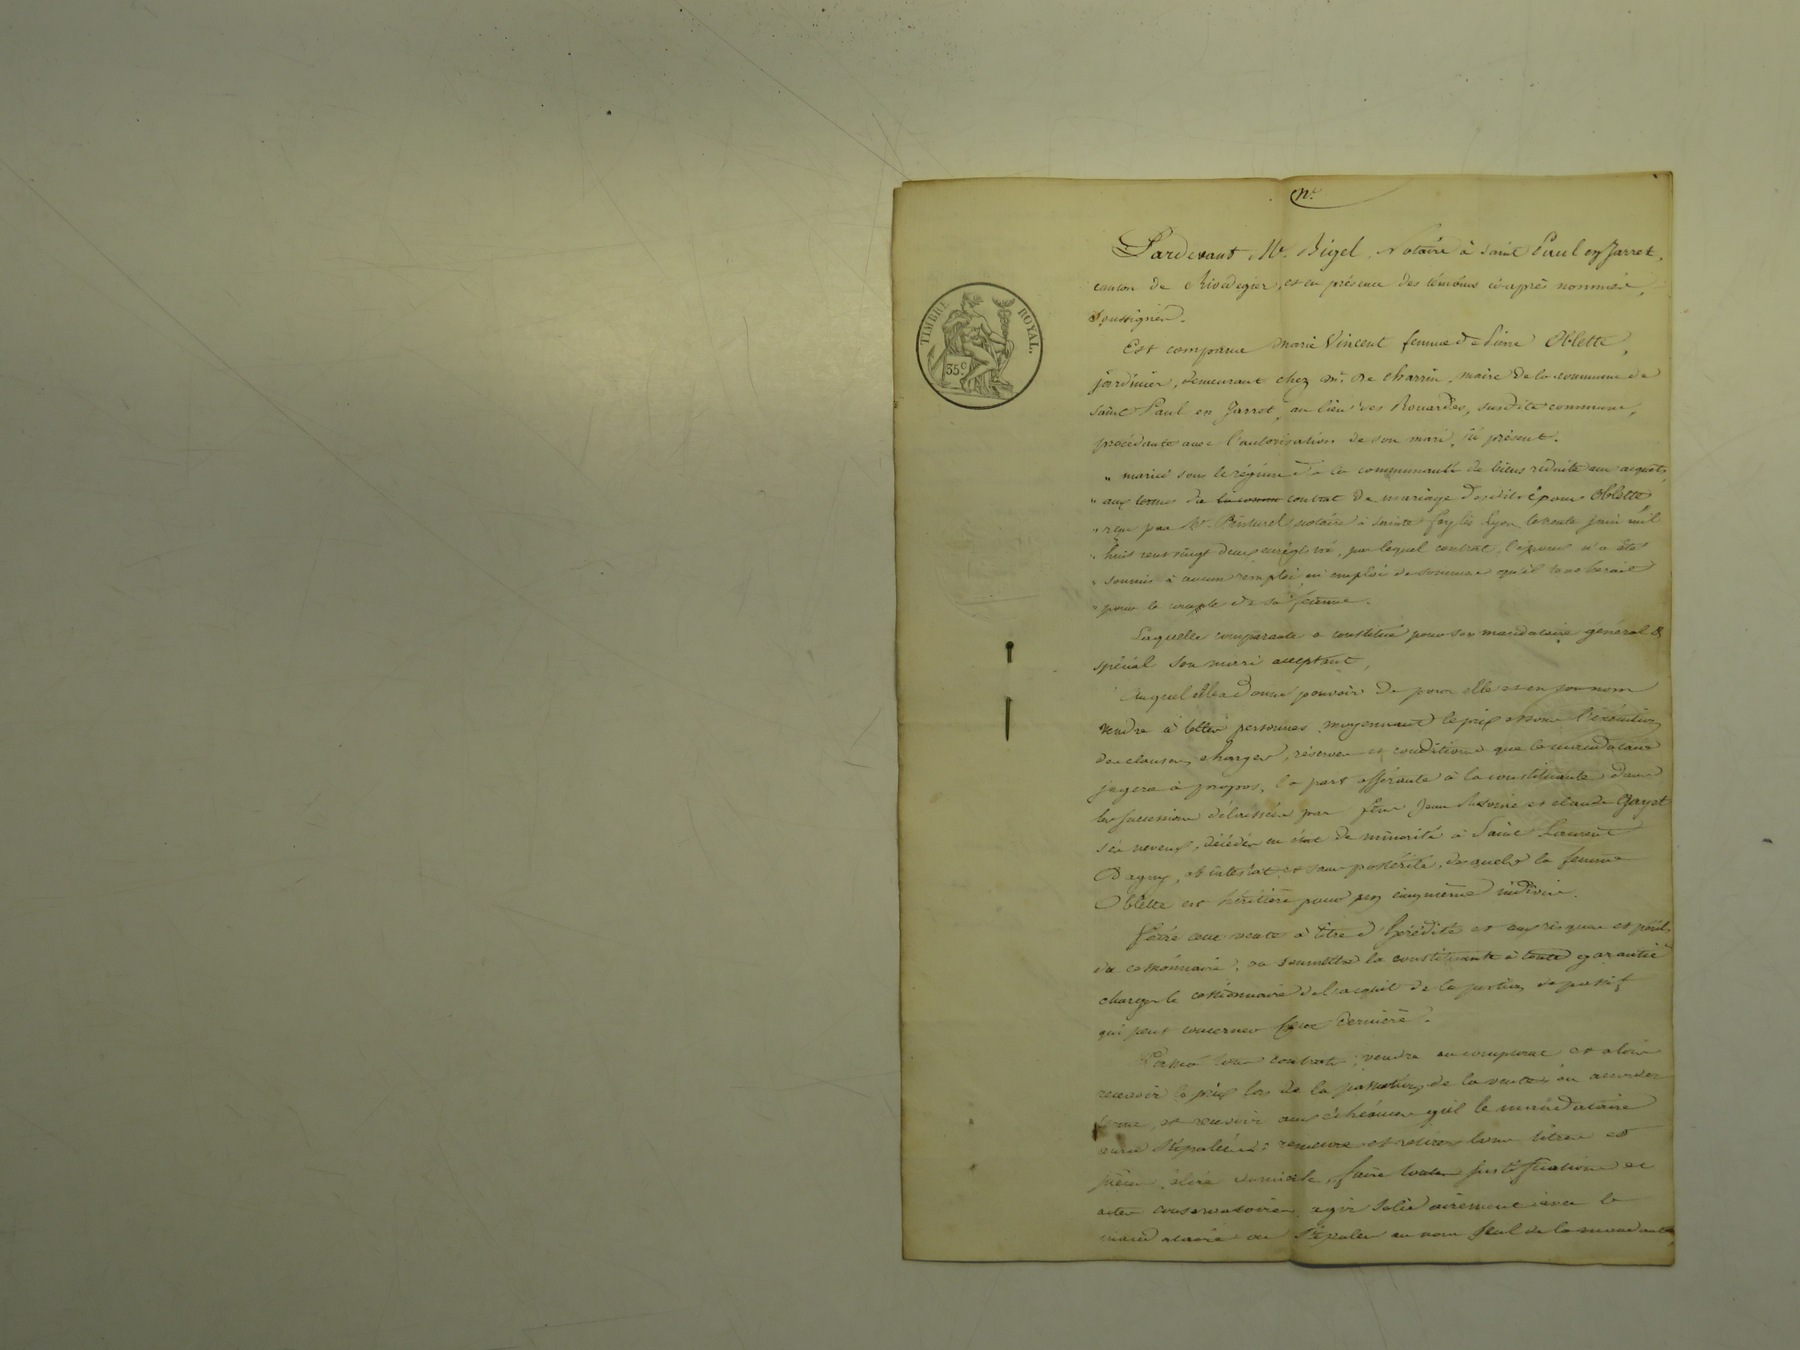 N.
TIMBRE ROYAL.
35 C
Pardevant Me. Bigel, Notaire à Saint Paul en Jarret,
canton de Rivedegier, et en présence des témoins ci-après nommés,
soussignés.
Est comparue Marie Vincent femme de Pierre Oblette,
jardinier, demeurant chez Mr. De Charrin, maire de la commune de
Saint Paul en Jarret, au lieu des Rouardes, susdite commune,
procédante avec l'autorisation de son mari, ici présent.
" mariés sous le régime de la communauté de biens réduite aux acquets,
" aux termes du la comm contrat de mariage desdits époux Oblette
" reçu par Me notaire à Sainte Foy lès Lyon, le trente juin mil
" huit cent vingt deux enrégistré, par lequel contrat, l'époux n'a été
" soumis à aucun remploi, ni emploi de sommes qu'il toucherait
" pour le compte de sa femme.
Laquelle comparante a constitué pour son mandataire général &
spécial son mari acceptant,
Auquel elle a donné pouvoir de pour elle et en son nom
vendre à telles personnes, moyennant le prix et sous l'exécution
des clauses, charges, réserves et conditions que le mandataire
jugera à propos, la part afférante à la constituante dans
les successions délaissées par feu Jean et Claude Gayet
ses neveux, décédés en état de minorité à Saint Laurent
D'agny, ab intestat et sans postérité, desquels la femme
Oblette est héritière pour un cinquième indivis.
Faire cette vente à titre d'hérédité et aux risques et périls
du cessionnaire, ou soumettre la constituante à toute garantie
charger le cessionnaire de l'acquit de la portion de passif
qui peut concerner cette dernière.
Passer tous contrats; vendre au comptant et alors
recevoir le prix lors de la passation de la vente; ou accorder
terme, et recevoir aux échéances qu'il le mandataire
aura stipulées; remettre et retirer tous titres et
pièces, élire domicile, faire toutes justifications et
actes conservatoires, agir solidairement avec le
mandataire ou stipuler au nom seul de la mandante,